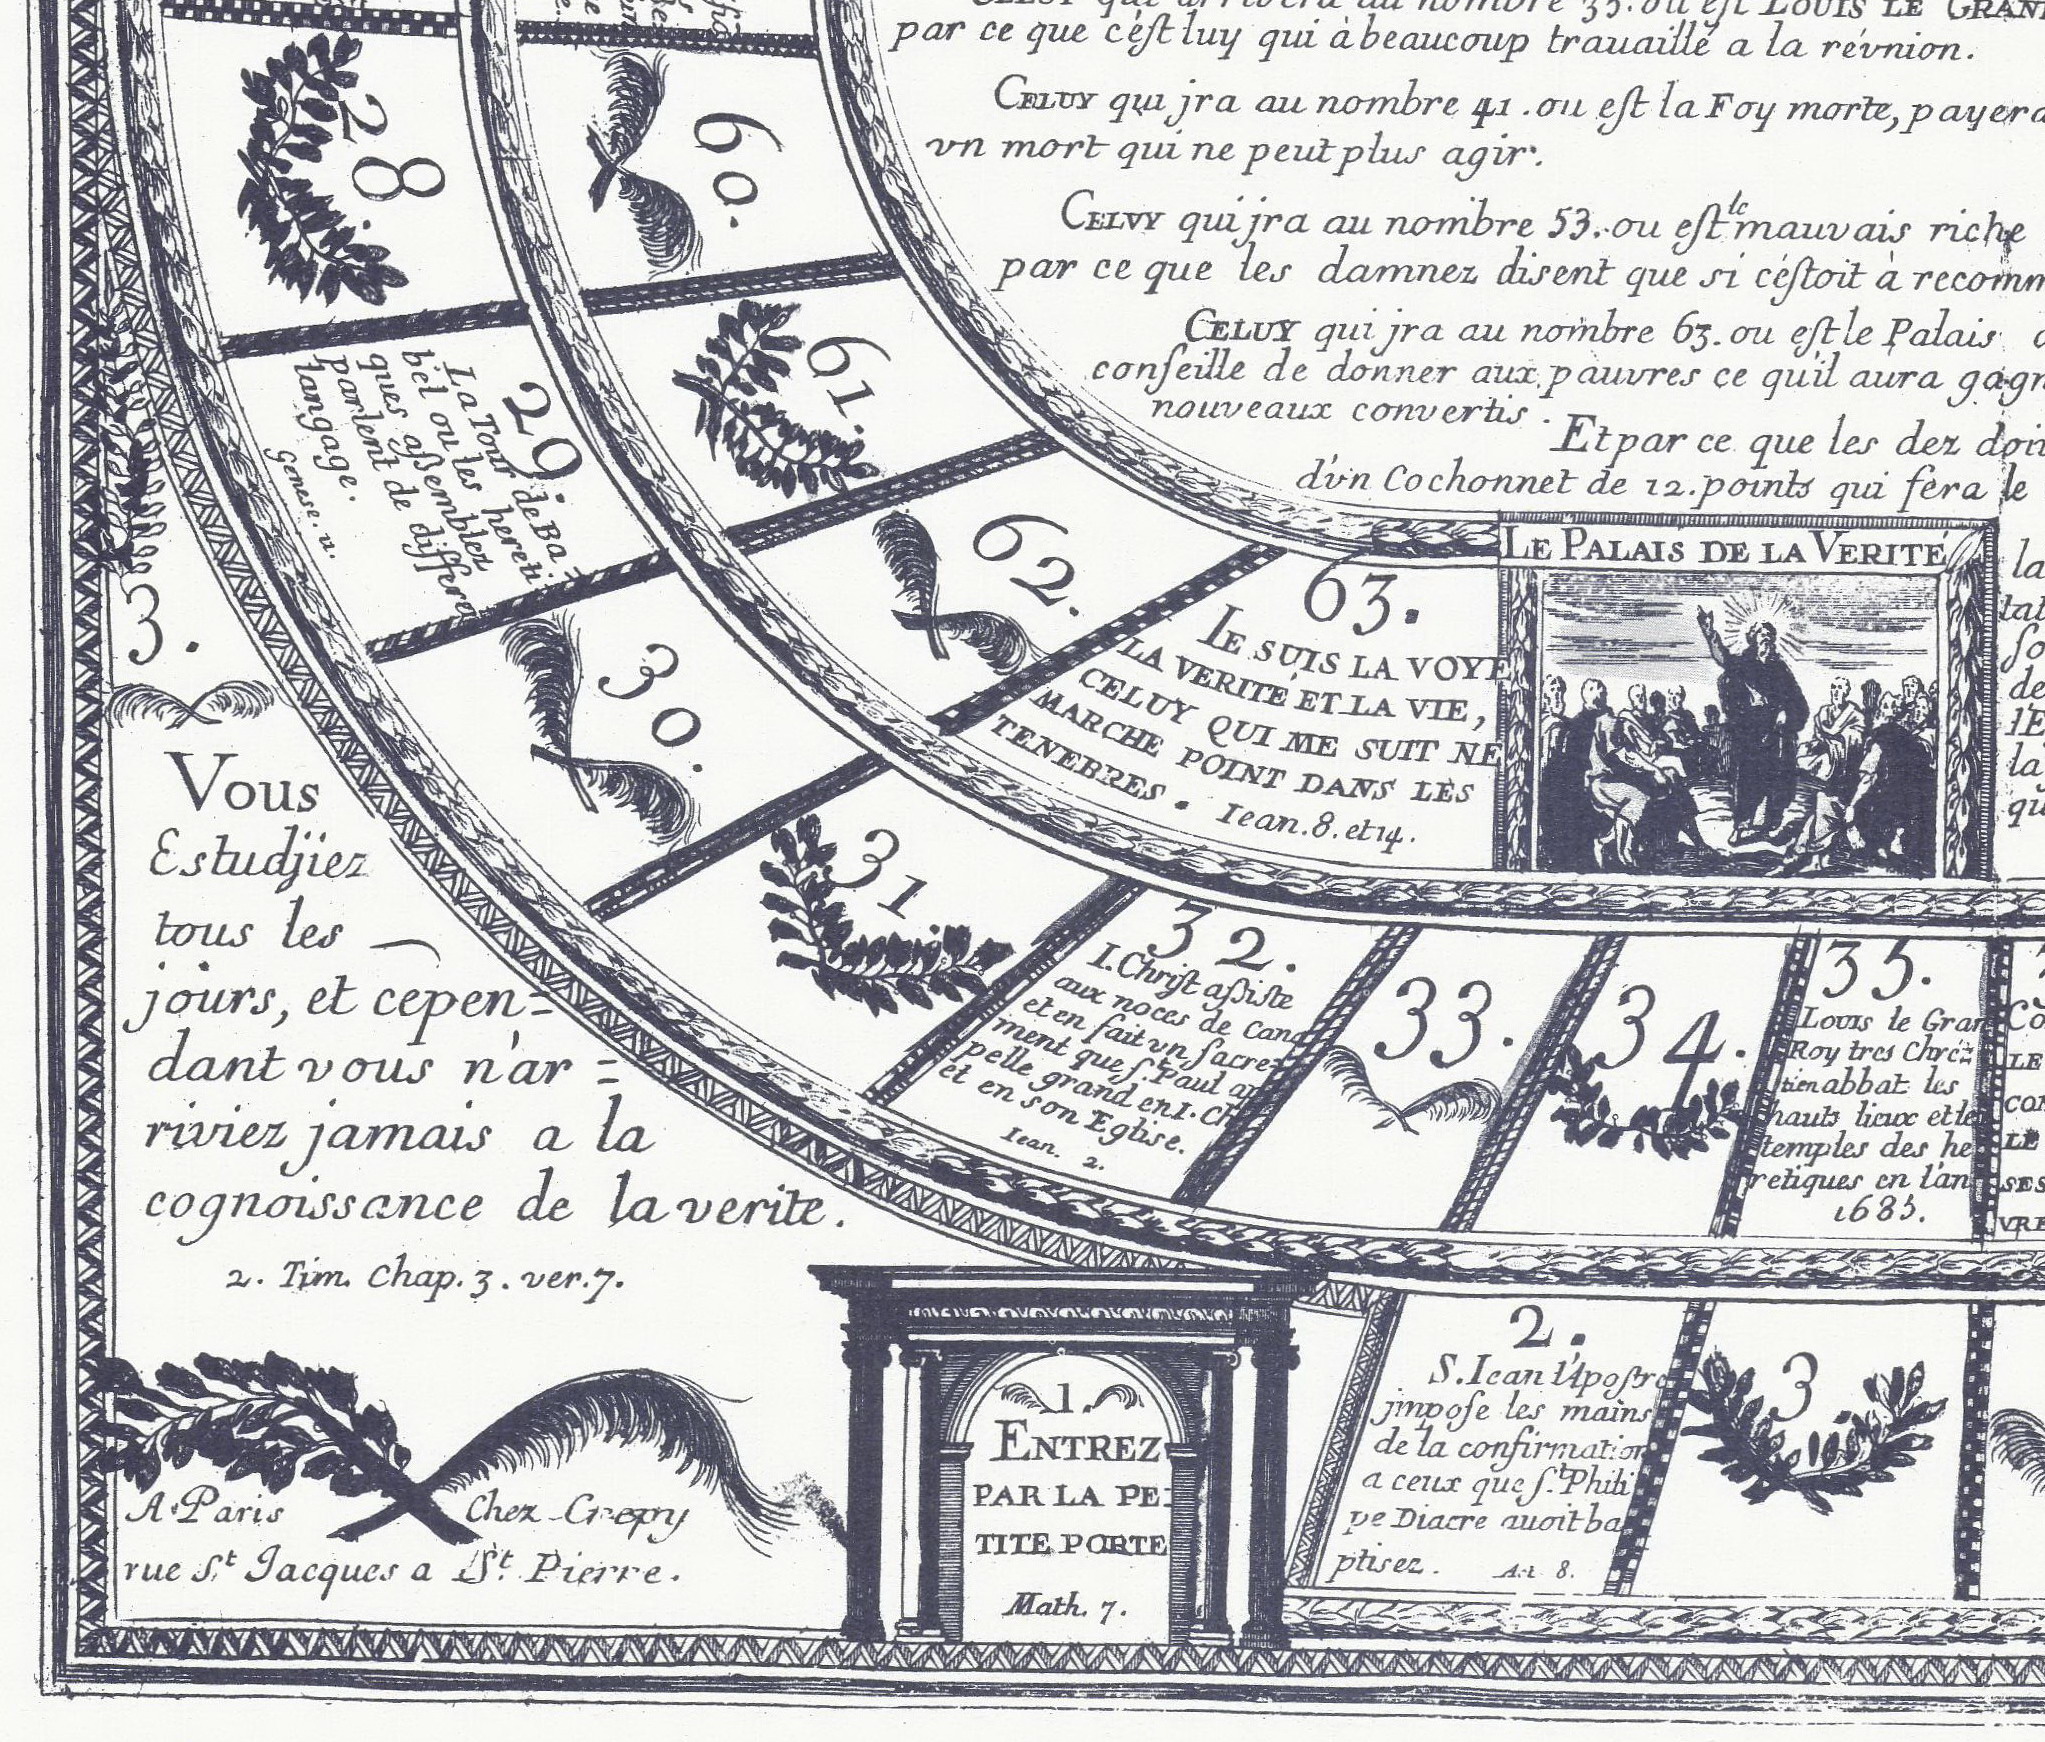 qui arrivera au nombre 35. ou eſt LOUIS LE GRAN
par ce que c'éſt luy qui à beaucoup trauaillé a la révnion.
CELUY qui jra au nombre 41. ou eſt la Foy morte, payera
vn mort qui ne peut plus agir.
CELVY qui jra au nombre 53. ou eſt le mauvais riche
par ce que les damnez disent que si céſtoit à recomm
CELUY qui jra au nombre 63. ou eſt le Palais
conſeille de donner aux pauvres ce qu'il aura gagn
nouveaux convertis.
Et par ce que les dez doi
d'vn Cochonnet de 12. points qui fera le
28.
60.
61.
29.
La Tour de Ba=
bel ou les hereti
ques aßemblez
parlent de differa
langage.
Genese. 11.
62.
30.
31.
63.
IE SUIS LA VOYE
LA VERITÉ ET LA VIE,
CELUY QUI ME SUIT NE
MARCHE POINT DANS LES
TENEBRES.
Iean. 8. et 14.
LE PALAIS DE LA VERITÉ
la
tat
ſo
de
l'E
la
qu
32.
I. Chriſt aßiſte
aux noces de Cana
et en fait vn ſacre=
ment que ſt. Paul ap
pelle grand en I. Ch
et en son Egliſe.
Iean. 2.
33.
34.
35.
Louis le Gran
Roy tres Chré=
tien abbat les
hauts lieux et le
temples des he
retiques en l'an
1685.
CO
LE
CON
LE
SES
VRE
3.
Vous
Estudjiez
tous les
jours, et cepen=
dant vous n'ar=
riviez jamais a la
cognoissance de la verite.
2. Tim. Chap. 3. ver. 7.
A Paris Chez Crepy
rue St Jacques a St. Pierre.
1.
ENTREZ
PAR LA PE=
TITE PORTE
Math. 7.
2.
S. Iean l'Apoſtre
jmpoſe les mains
de la confirmation
a ceux que ſt. Phili
pe Diacre auoit ba
ptisez. Act 8.
3